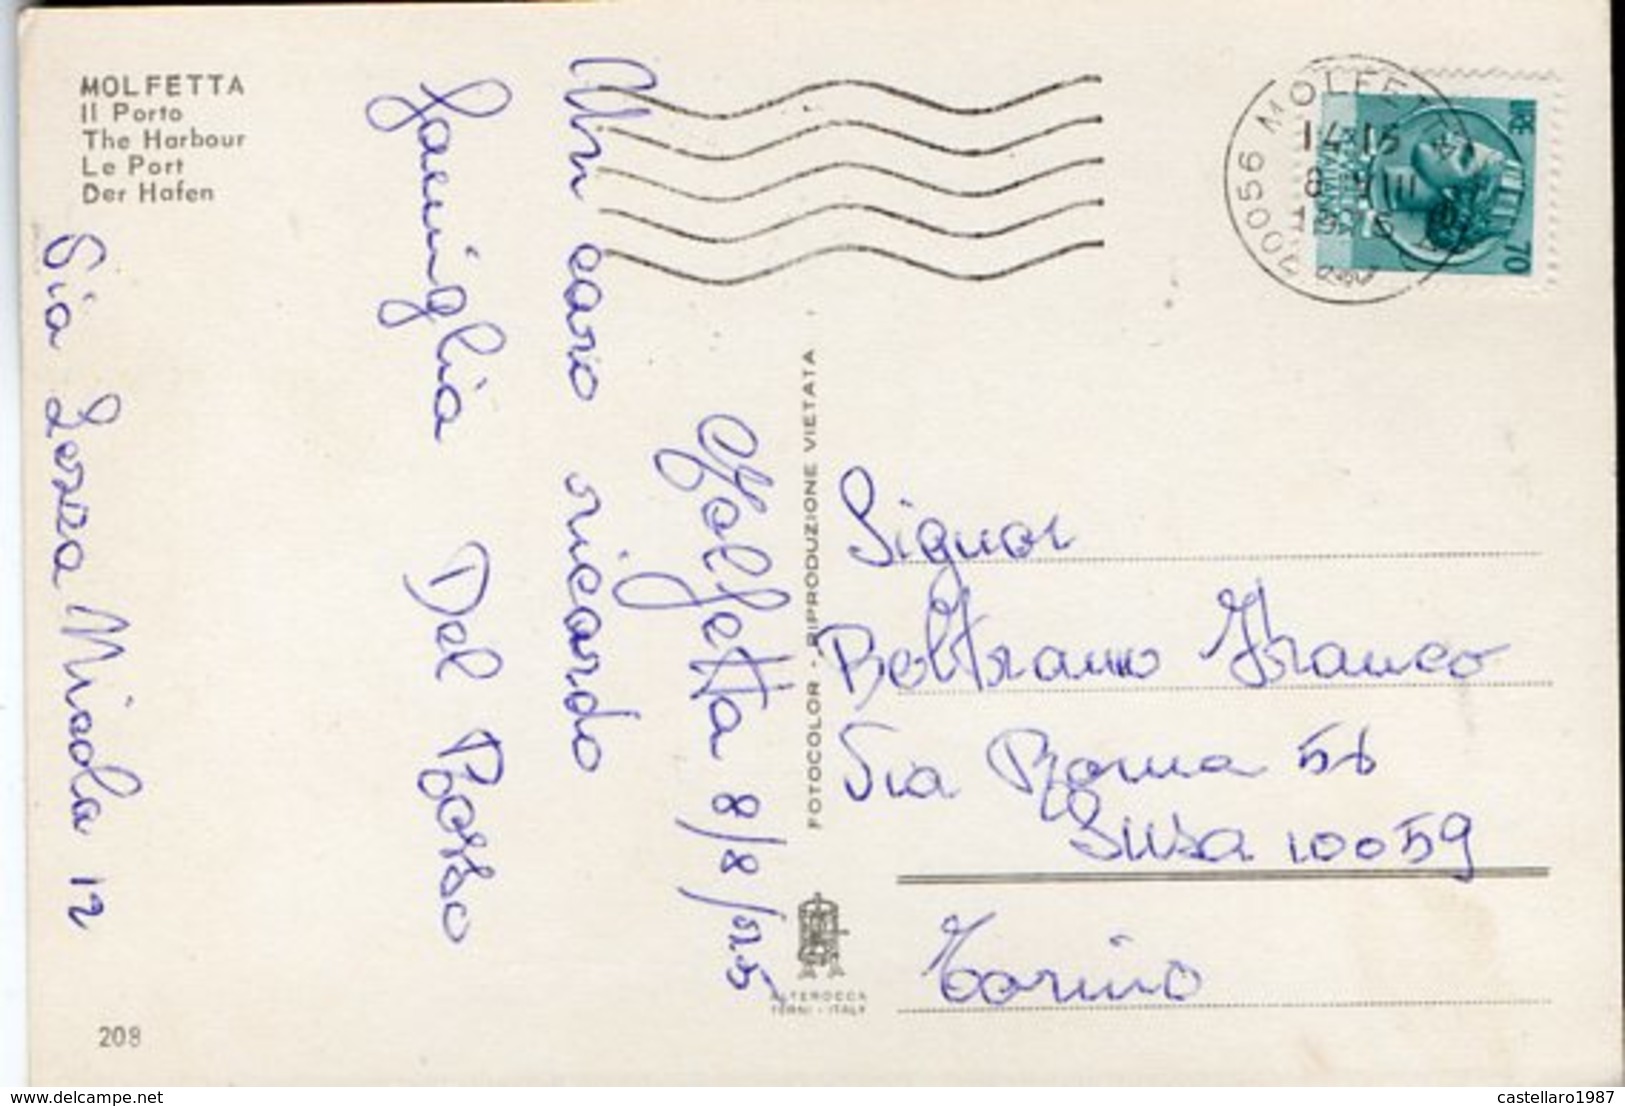 MOLFETTA
Il Porto
The Harbour
Le Port
Der Hafen
Molfetta 8/8/75
Un caro ricordo
Famiglia Del Rosso
Via Lezza Miada 12
208
FOTOCOLOR - RIPRODUZIONE VIETATA
ALTEROCCA
TERNI - ITALY
70056 MOLFETTA
14-15
8 VIII
LIRE 70
Signor
Beltramo Franco
Via Roma 56
Susa 10059
Torino
www.delcampe.net
castellaro1987